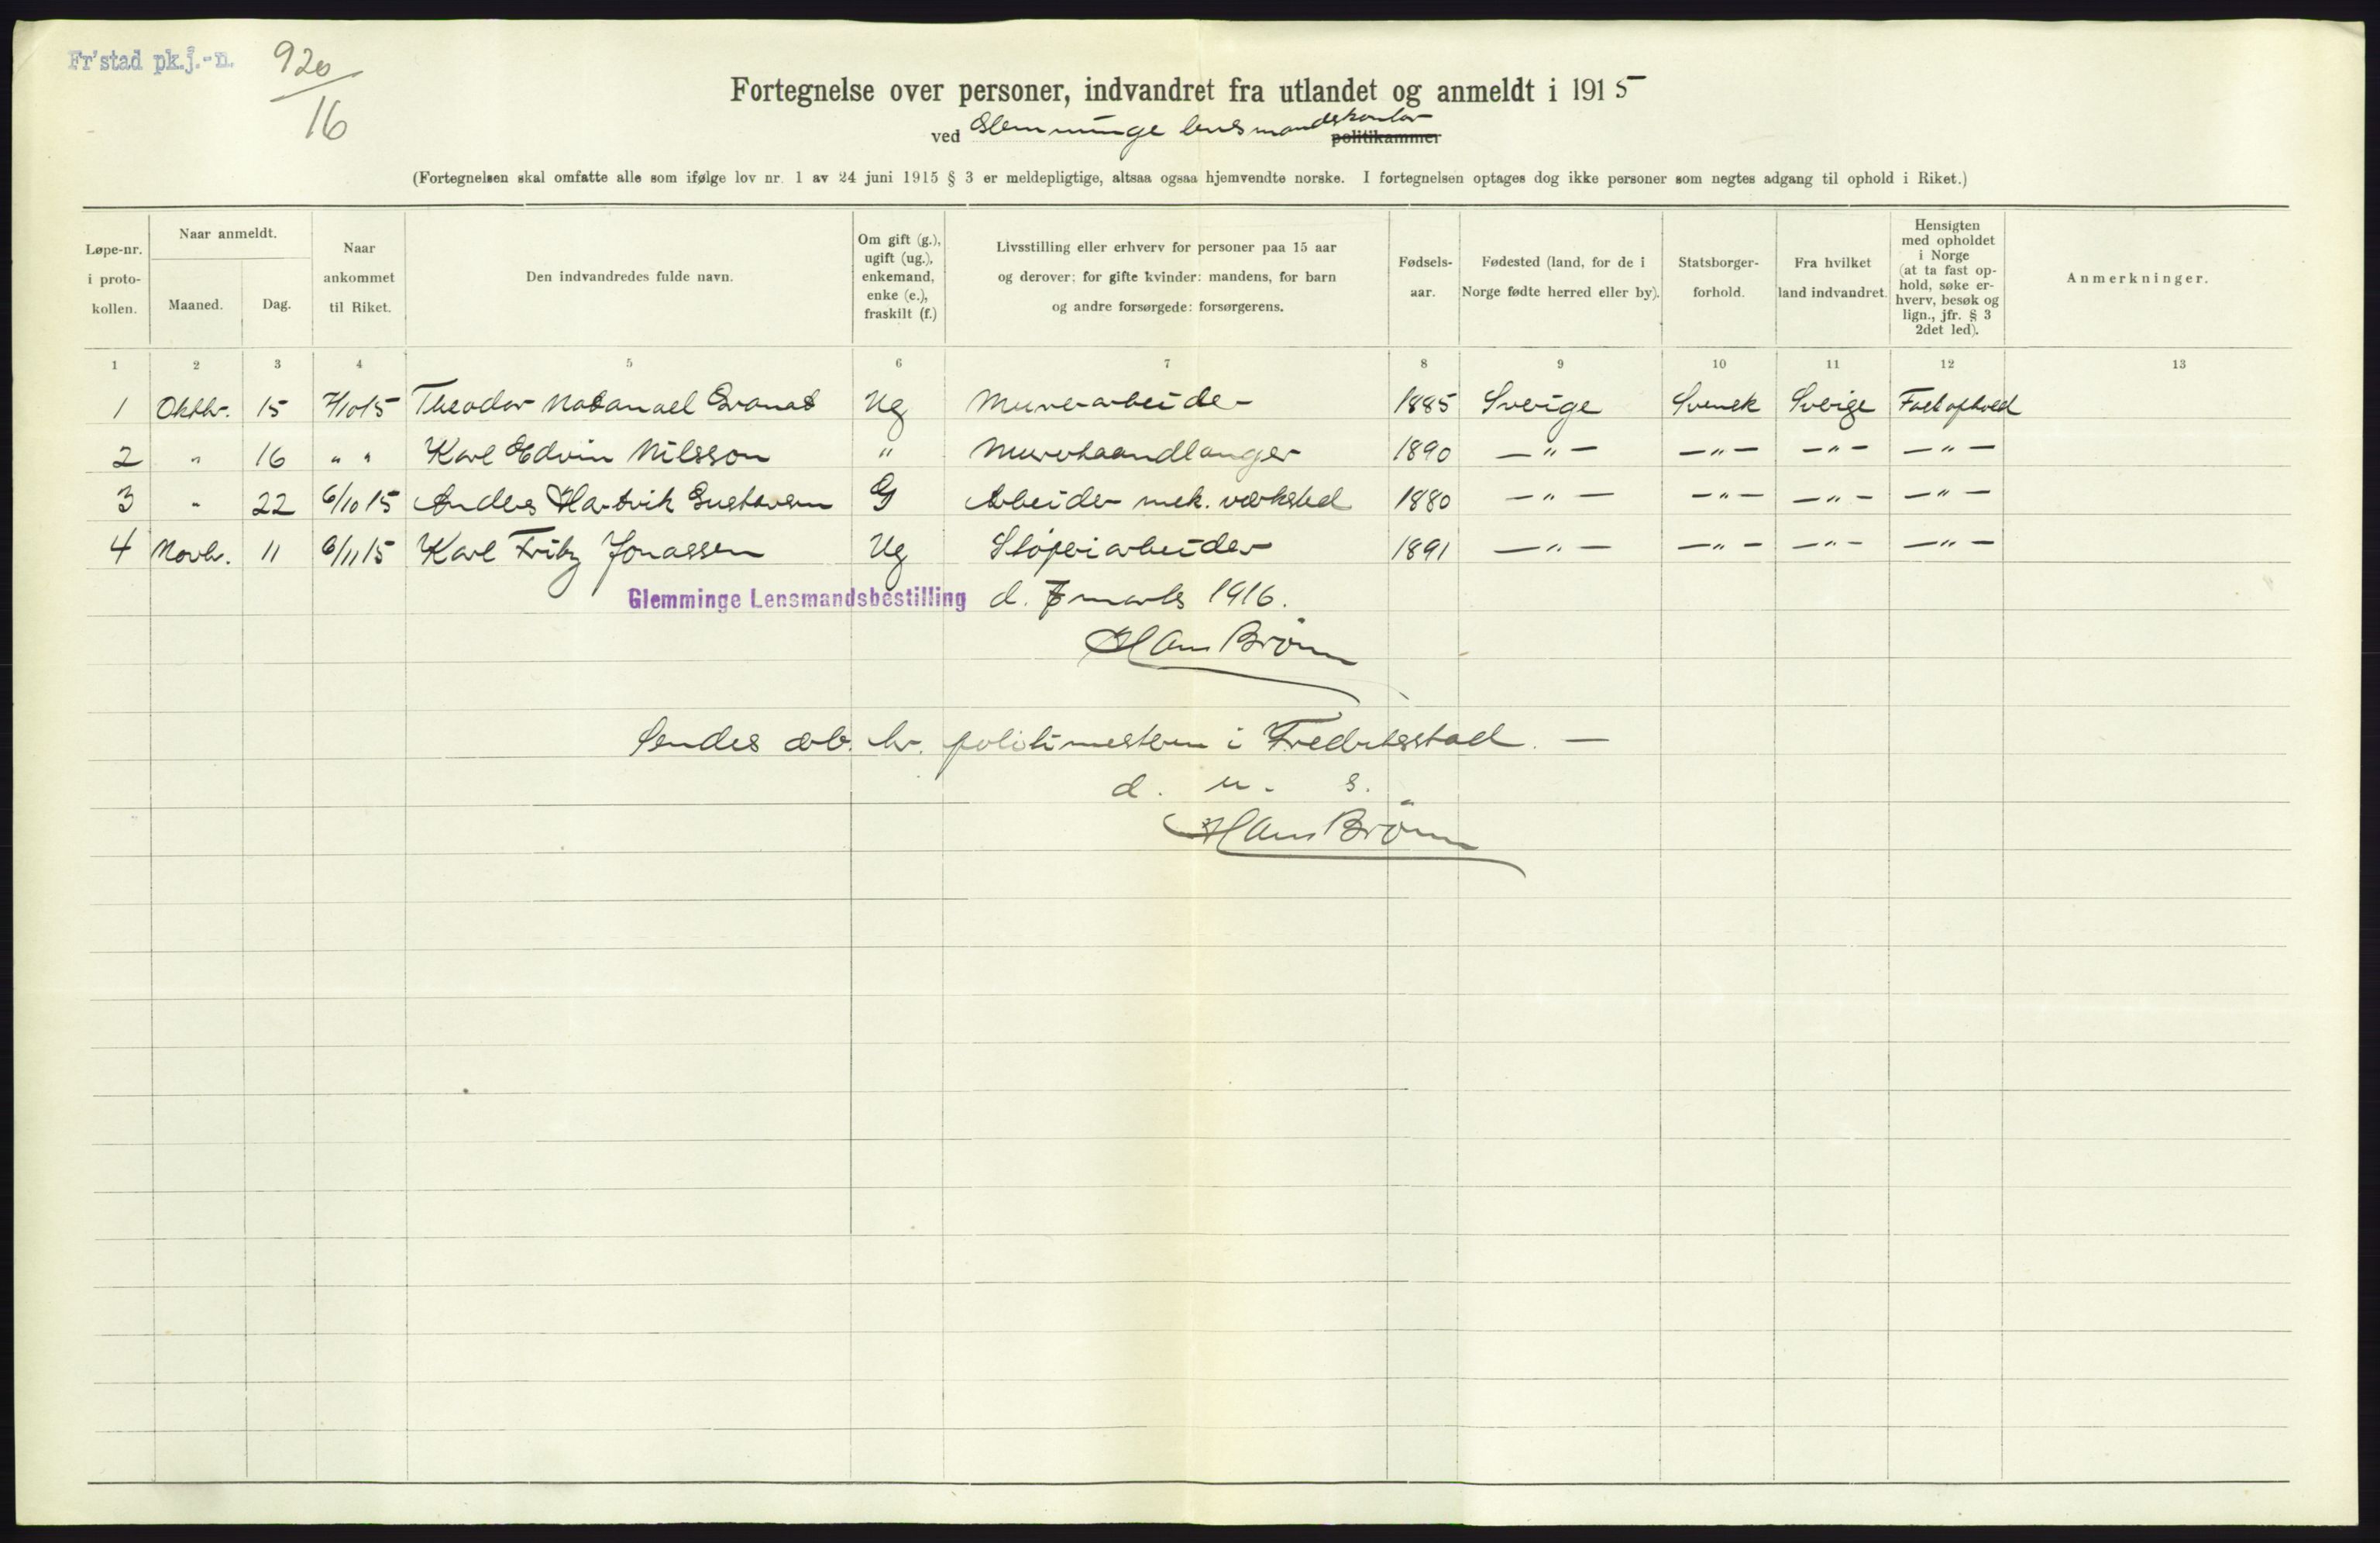 Fr'stad pk.j.-n. 920/16
Fortegnelse over personer, indvandret fra utlandet og anmeldt i 1915
ved Glemminge lensmandskontor politikammer
(Fortegnelsen skal omfatte alle som ifølge lov nr. 1 av 24 juni 1915 § 3 er meldepligtige, altsaa ogsaa hjemvendte norske. I fortegnelsen optages dog ikke personer som negtes adgang til ophold i Riket.)
Løpe-nr. i proto-kollen.
Naar anmeldt.
Maaned.
Dag.
Naar ankommet til Riket.
Den indvandredes fulde navn.
Om gift (g.), ugift (ug.), enkemand, enke (e.), fraskilt (f.)
Livsstilling eller erhverv for personer paa 15 aar og derover; for gifte kvinder: mandens, for barn og andre forsørgede: forsørgerens.
Fødsels-aar.
Fødested (land, for de i Norge fødte herred eller by).
Statsborger-forhold.
Fra hvilket land indvandret.
Hensigten med opholdet i Norge (at ta fast op-hold, søke er-hverv, besøk og lign., jfr. § 3 2det led).
Anmerkninger.
1 2 3 4 5 6 7 8 9 10 11 12 13
1 Oktbr. 15 7/10 15 Theodor Natanael Granat Ug Murerarbeider 1885 Sverige Svensk Sverige Fast ophold
2 " 16 " " Karl Edvin Nilsson " Murerhaandlanger 1890 —"— —"— —"— —"—
3 " 22 6/10 15 Anders Hartvik Gustavsen G Arbeider mek. verksted 1880 —"— —"— —"— —"—
4 Novbr. 11 6/11 15 Karl Fritz Jonassen Ug Støperiarbeider 1891 —"— —"— —"— —"—
Glemminge Lensmandsbestilling d. 7 marts 1916.
Hans Brønn
Sendes ærb. hr. politimesteren i Fredriksstad. —
d. u. s.
Hans Brønn